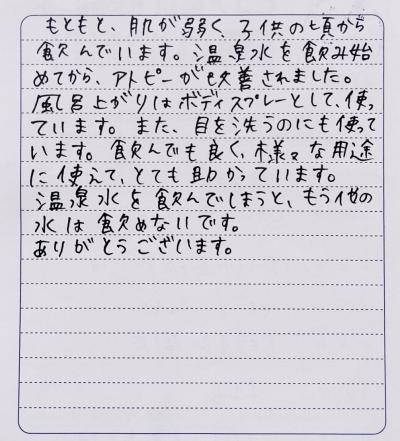 もともと、肌が弱く、子供の頃から
飲んでいます。温泉水を飲み始
めてから、アトピーが改善されました。
風呂上がりはボディスプレーとして、使っ
ています。また、目を洗うのにも使って
います。飲んでも良く、様々な用途
に使えて、とても助かっています。
温泉水を飲んでしまうと、もう他の
水は飲めないです。
ありがとうございます。